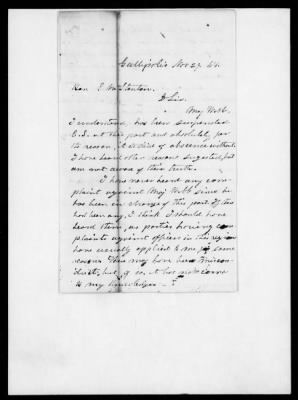 Gallipolis Nov 27. 63.
Hon E. M. Stanton.
D. Sir.
Maj Webb,
I understand, has been suspended
at this post and absolutely, for
the reason, it is said of absence without
I have heard other reasons suggested, but
am not aware of their truth.
I have never heard any com-
plaint against Maj Webb since he
has been in charge of this post. If there
had been any, I think I should have
heard them, as parties having com-
plaints against officers in this region
have usually applied to me for some
reason. There may have been miscon-
duct, but, if so, it has not come
to my knowledge —